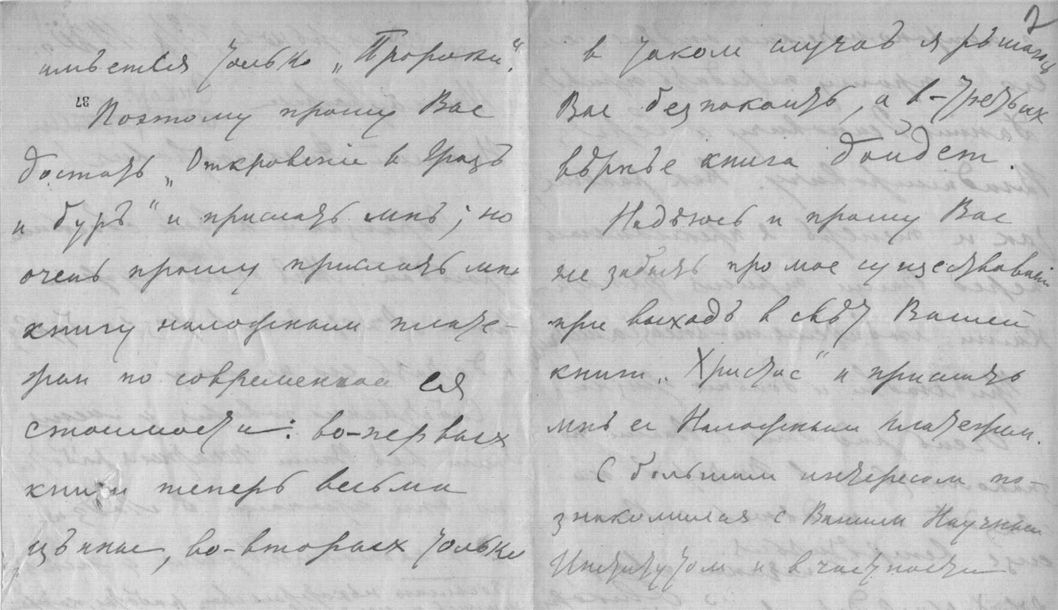 имѣется только „Пророки“.
Поэтому прошу Вас
достать „Откровеніе в Грозѣ
и бурѣ“ и прислать мнѣ; но
очень прошу прислать мнѣ
книгу наложным плате-
жом по современной ея
стоимости: во-первых
книги теперь весьма
цѣнные, во-вторых только
2
в таком случаѣ я рѣшаюсь
Вас безпокоить, а в-третьих
вѣрнѣе книга дойдет.
Надѣюсь и прошу Вас
не забыть про мое существованіе
при выходѣ в свѣт Вашей
книги „Христос“ и прислать
мнѣ ее Наложным платежом.
С большим интересом по-
знакомился с Вашим Научным
Институтом и в частности
37